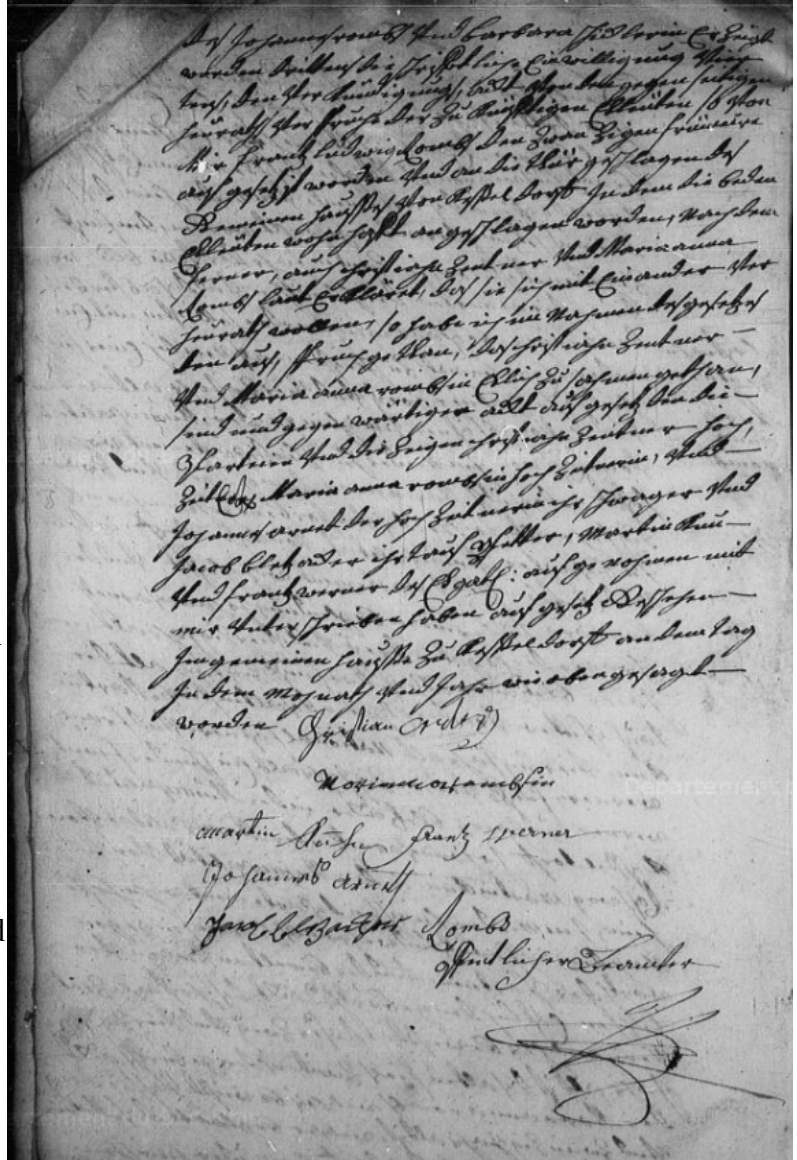 des Johannes rombs Und barbara
worden drittens die schriftliche Einwilligung Vier
tens, den Verkündigungs, ackt Von dem gegen seitigen
heÿrath Ver spruch der Zu künftigen Ehleüten so Von
Mir frantz ludwig rombs den Zwan Zigen
auf gesetzt worden Und an die thür geschlagen des
Gemeinen hausses Von Kesseldorff In dem die beden
Ehleüten wohnhafft angeschlagen worden, Nach dem
ferner, auch christian Zentner Und Maria anna
rombs laut Erkläret, das sie sich mit Einander Ver
heÿrath wollen, so habe ich im Nahmen des gesetzes
den aus, spruch gethan, das christian Zentner
Und Maria anna rombsin Ehlich Zu sahmen gethan,
sind und gegen wärtiger ackt auf gesetz den die
Parteien Und die Zeigen christian Zentner hoch,
Zeiter, Maria anna rombsin hoch Zeiterin, Und
Johannes arnet der hoch Zeiterin ihr schwager Und
Jacob bletzacker ihr tauf Pfetter, Martin Kuu
Und frantz werner des : auf genohmen mit
mir Unter schrieben haben auf gesetz Geschehen
Im gemeinen hausse Zu Kesseldorff an dem tag
In dem Mohnath Und Jahr wie oben gesagt
worden Christian
Mariana rombsin
Martin Kuhn frantz Werner
Johannes arnet
Jacob bletzacker Rombs
offentlicher Beamter
Departement